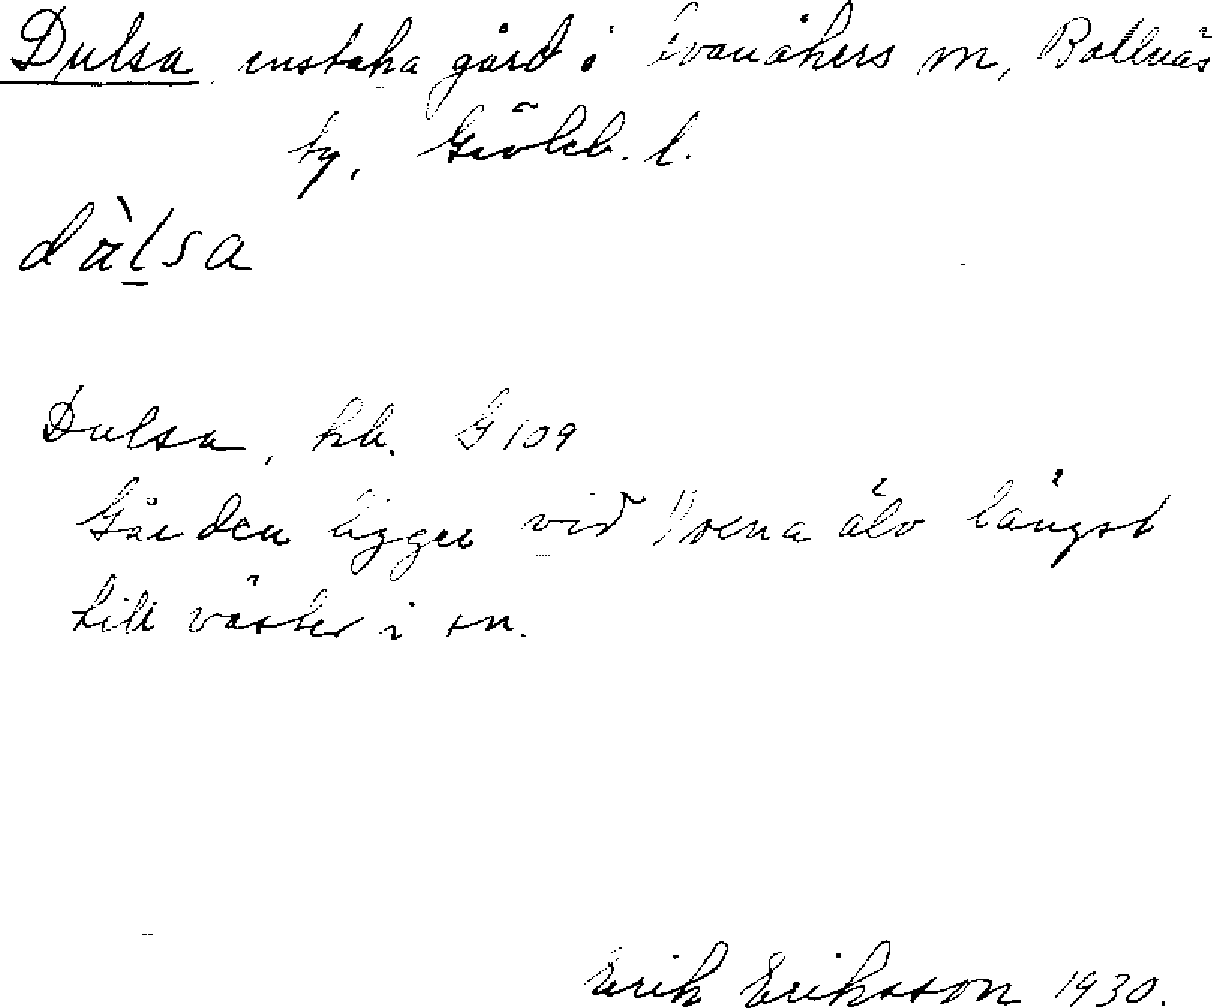 Dulsa enstaka gård i Svanåkers sn, Bollnäs
tg, Gävleb. l.
Dulsa, kb. G 109
Gården ligger vid Voxna älv längst
till väster i sn.
Erik Eriksson 1930.